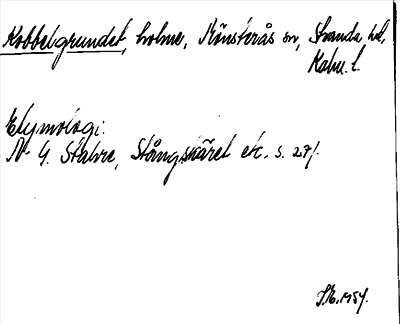 Kobbelgrundet, holme, Mönsterås sn, Stranda hd,
Kalm. l.
Etymologi:
N. G. Stahre, Stångskäret etc. s. 27f.
1954.